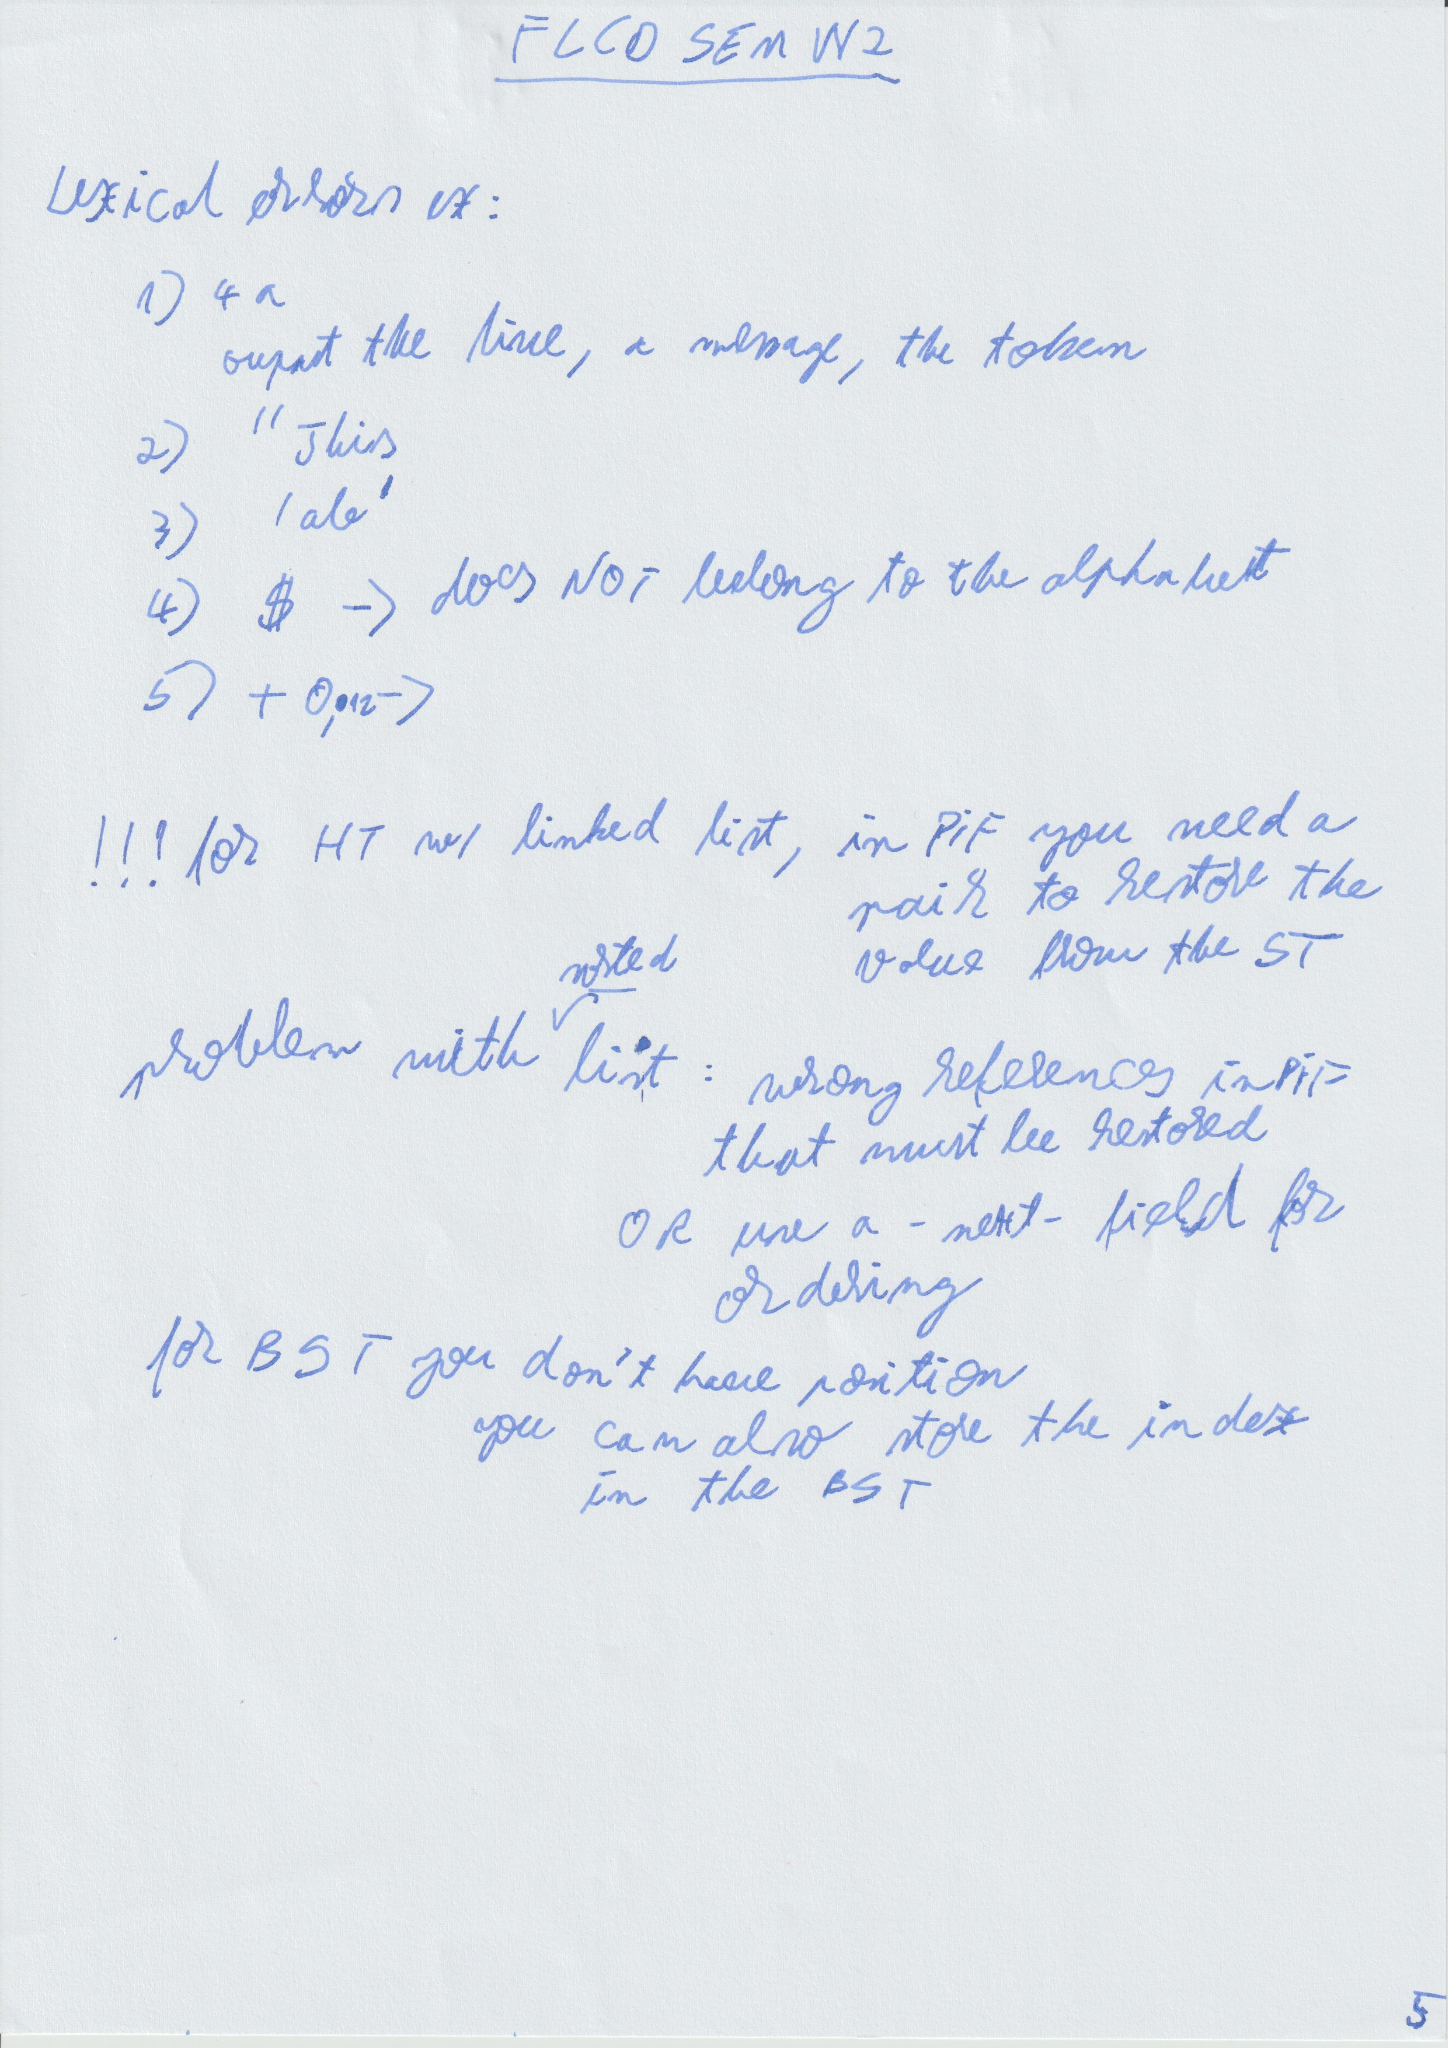 FLCD SEM W2
Lexical errors ex:
1) 4a
ouput the line, a message, the token
2) "This
3) 'ab'
4) $ -> does NOT belong to the alphabet
5) + 0,012 ->
!!! for HT w/ linked list, in PiF you need a
pair to restore the
value from the ST
sorted
problem with list: wrong references in PiF
that must be restored
OR use a - next - field for
ordering
for BST you don't have position
you can also store the index
in the BST
5